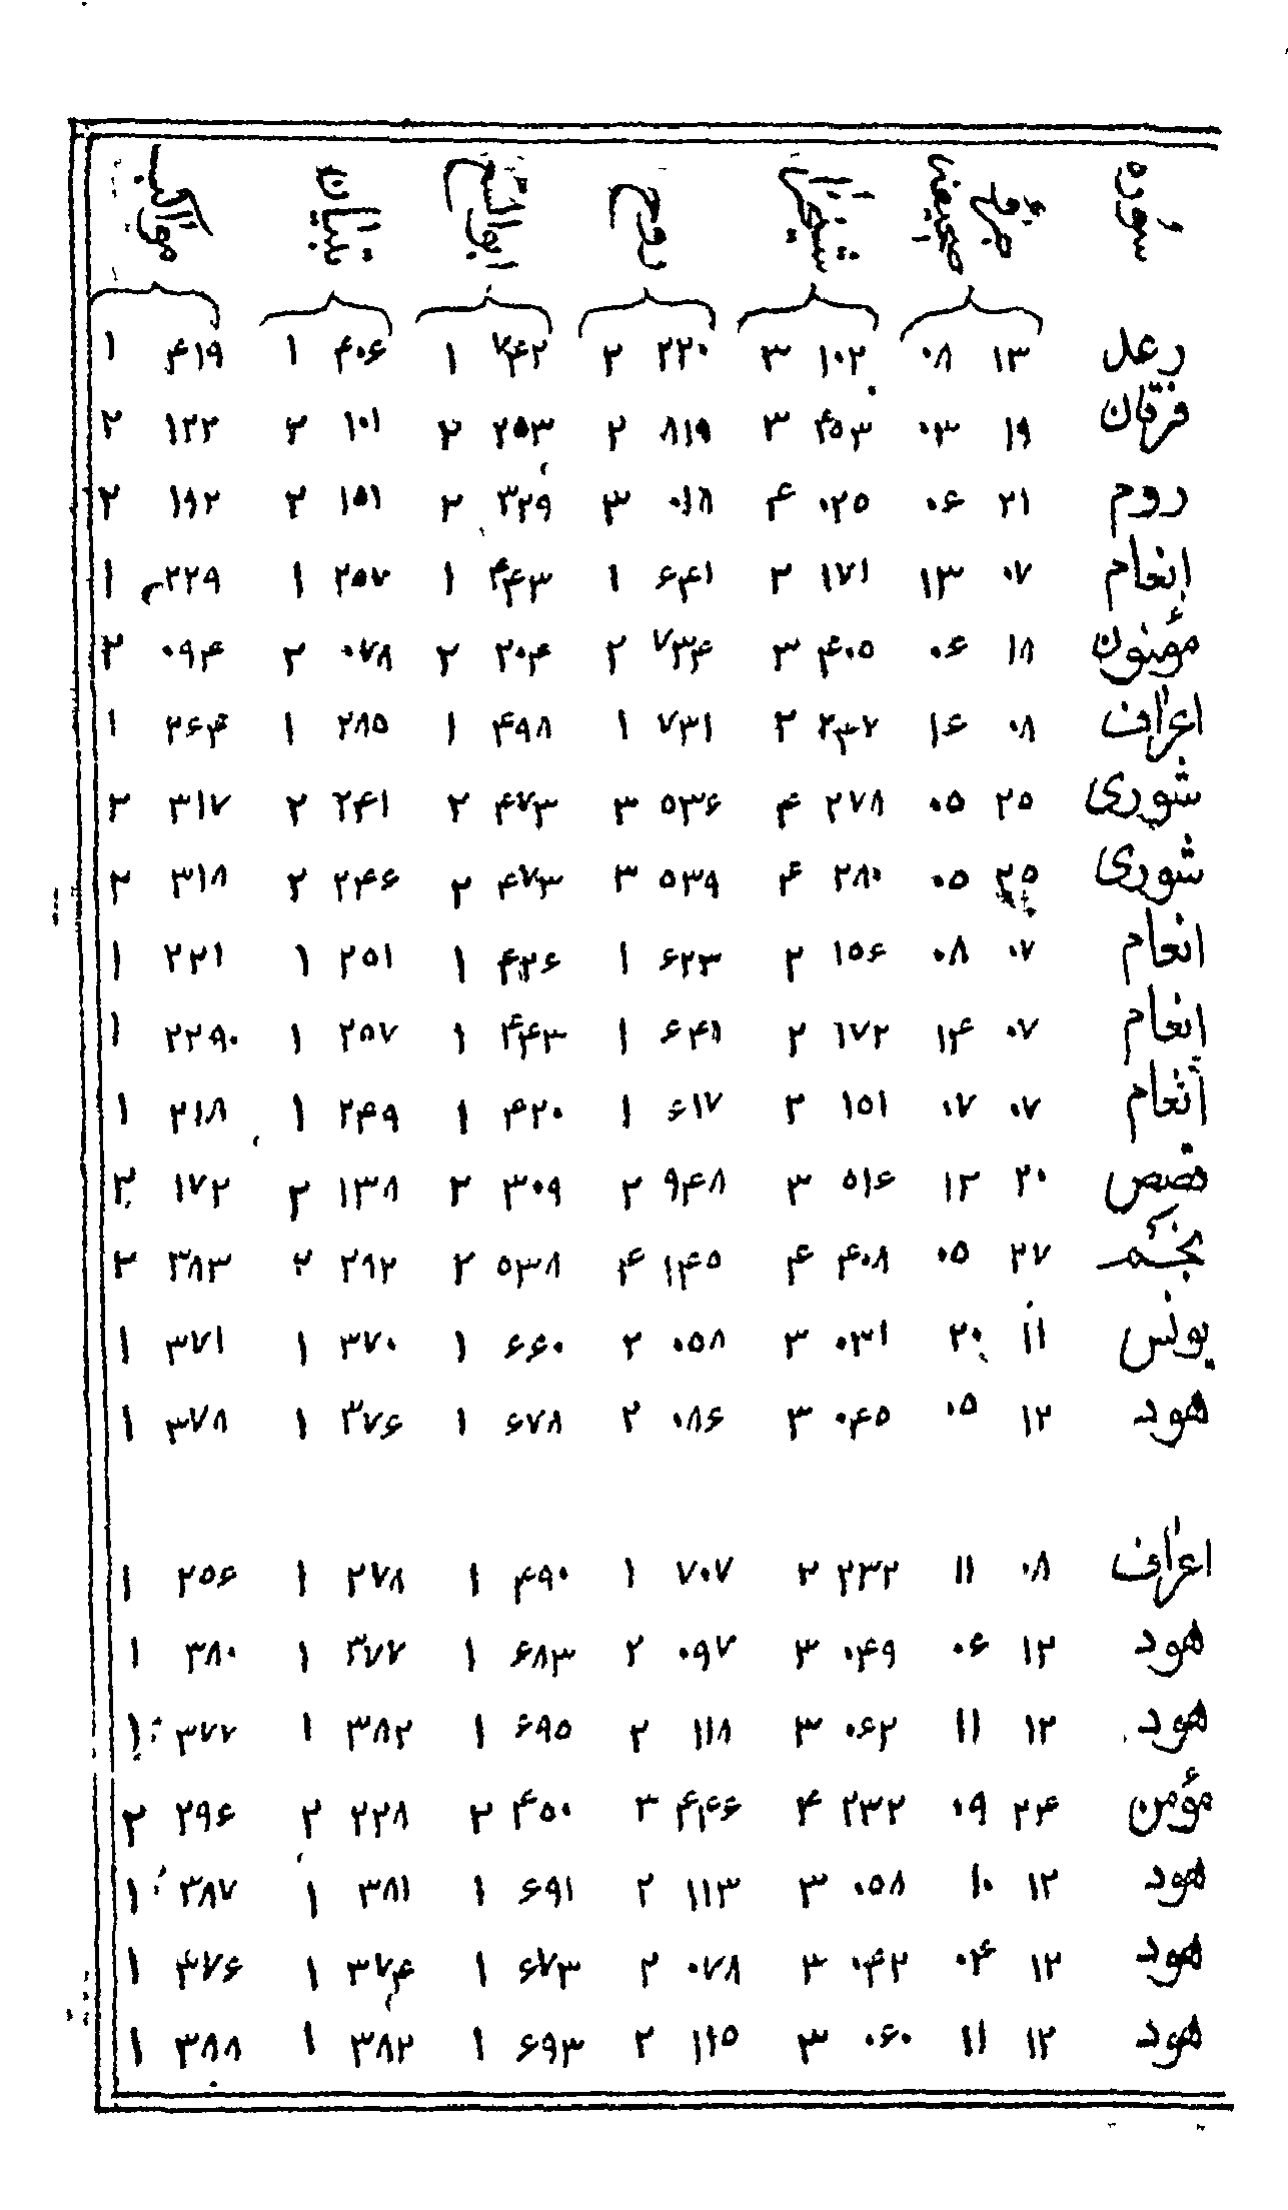 سوره جزء صحیفه روح تبیان
رعد ۱۳ ۰۸ ۱۰۲ ۳ ۲۲۰ ۲ ۷۴۲ ۱ ۴۰۶ ۱ ۴۱۹ ۱
فرقان ۱۹ ۰۳ ۴۵۳ ۳ ۸۱۹ ۲ ۲۵۳ ۲ ۱۰۱ ۲ ۱۲۲ ۲
روم ۲۱ ۰۶ ۰۲۵ ۴ ۰۱۸ ۳ ۳۲۹ ۲ ۱۵۱ ۲ ۱۹۲ ۲
انعام ۰۷ ۱۳ ۱۷۱ ۲ ۶۴۱ ۱ ۴۴۳ ۱ ۲۵۷ ۱ ۲۲۹ ۱
مؤمنون ۱۸ ۰۶ ۴۰۵ ۳ ۷۳۴ ۲ ۲۰۴ ۲ ۰۷۸ ۲ ۰۹۴ ۲
اعراف ۰۸ ۱۶ ۲۳۲ ۲ ۷۳۱ ۱ ۴۹۸ ۱ ۲۸۵ ۱ ۲۶۴ ۱
شوری ۲۵ ۰۵ ۲۷۸ ۴ ۵۳۶ ۳ ۴۷۳ ۲ ۲۴۱ ۲ ۳۱۷ ۲
شوری ۲۵ ۰۵ ۲۸۰ ۴ ۵۳۹ ۳ ۴۷۳ ۲ ۲۴۶ ۲ ۳۱۸ ۲
انعام ۰۷ ۰۸ ۱۵۶ ۲ ۶۲۳ ۱ ۴۲۶ ۱ ۲۵۱ ۱ ۲۲۱ ۱
انعام ۰۷ ۱۴ ۱۷۲ ۲ ۶۴۱ ۱ ۴۴۳ ۱ ۲۵۷ ۱ ۲۲۹۰ ۱
أنعام ۰۷ ۰۷ ۱۵۱ ۲ ۶۱۷ ۱ ۴۲۰ ۱ ۲۴۹ ۱ ۲۱۸ ۱
قصص ۲۰ ۱۲ ۵۱۶ ۳ ۹۴۸ ۲ ۳۰۹ ۲ ۱۳۸ ۲ ۱۷۲ ۲
نجم ۲۷ ۰۵ ۴۰۸ ۴ ۱۴۵ ۴ ۵۳۸ ۲ ۲۹۲ ۲ ۳۸۳ ۲
یونس ۱۱ ۲۰ ۰۳۱ ۳ ۰۵۸ ۲ ۶۶۰ ۱ ۳۷۰ ۱ ۳۷۱ ۱
هود ۱۲ ۰۵ ۰۴۵ ۳ ۰۸۶ ۲ ۶۷۸ ۱ ۳۷۶ ۱ ۳۷۸ ۱
اعراف ۰۸ ۱۱ ۲۳۲ ۲ ۷۰۷ ۱ ۴۹۰ ۱ ۲۷۸ ۱ ۲۵۶ ۱
هود ۱۲ ۰۶ ۰۴۹ ۳ ۰۹۷ ۲ ۶۸۳ ۱ ۳۷۷ ۱ ۳۸۰ ۱
هود ۱۲ ۱۱ ۰۶۲ ۳ ۱۱۸ ۲ ۶۹۵ ۱ ۳۸۲ ۱ ۳۷۷ ۱
مؤمن ۲۴ ۰۹ ۲۳۲ ۴ ۴۴۶ ۳ ۴۵۰ ۲ ۲۲۸ ۲ ۲۹۶ ۲
هود ۱۲ ۱۰ ۰۵۸ ۳ ۱۱۳ ۲ ۶۹۱ ۱ ۳۸۱ ۱ ۳۸۷ ۱
هود ۱۲ ۰۴ ۰۴۲ ۳ ۰۷۸ ۲ ۶۷۳ ۱ ۳۷۴ ۱ ۳۷۶ ۱
هود ۱۲ ۱۱ ۰۶۰ ۳ ۱۱۵ ۲ ۶۹۳ ۱ ۳۸۲ ۱ ۳۸۸ ۱